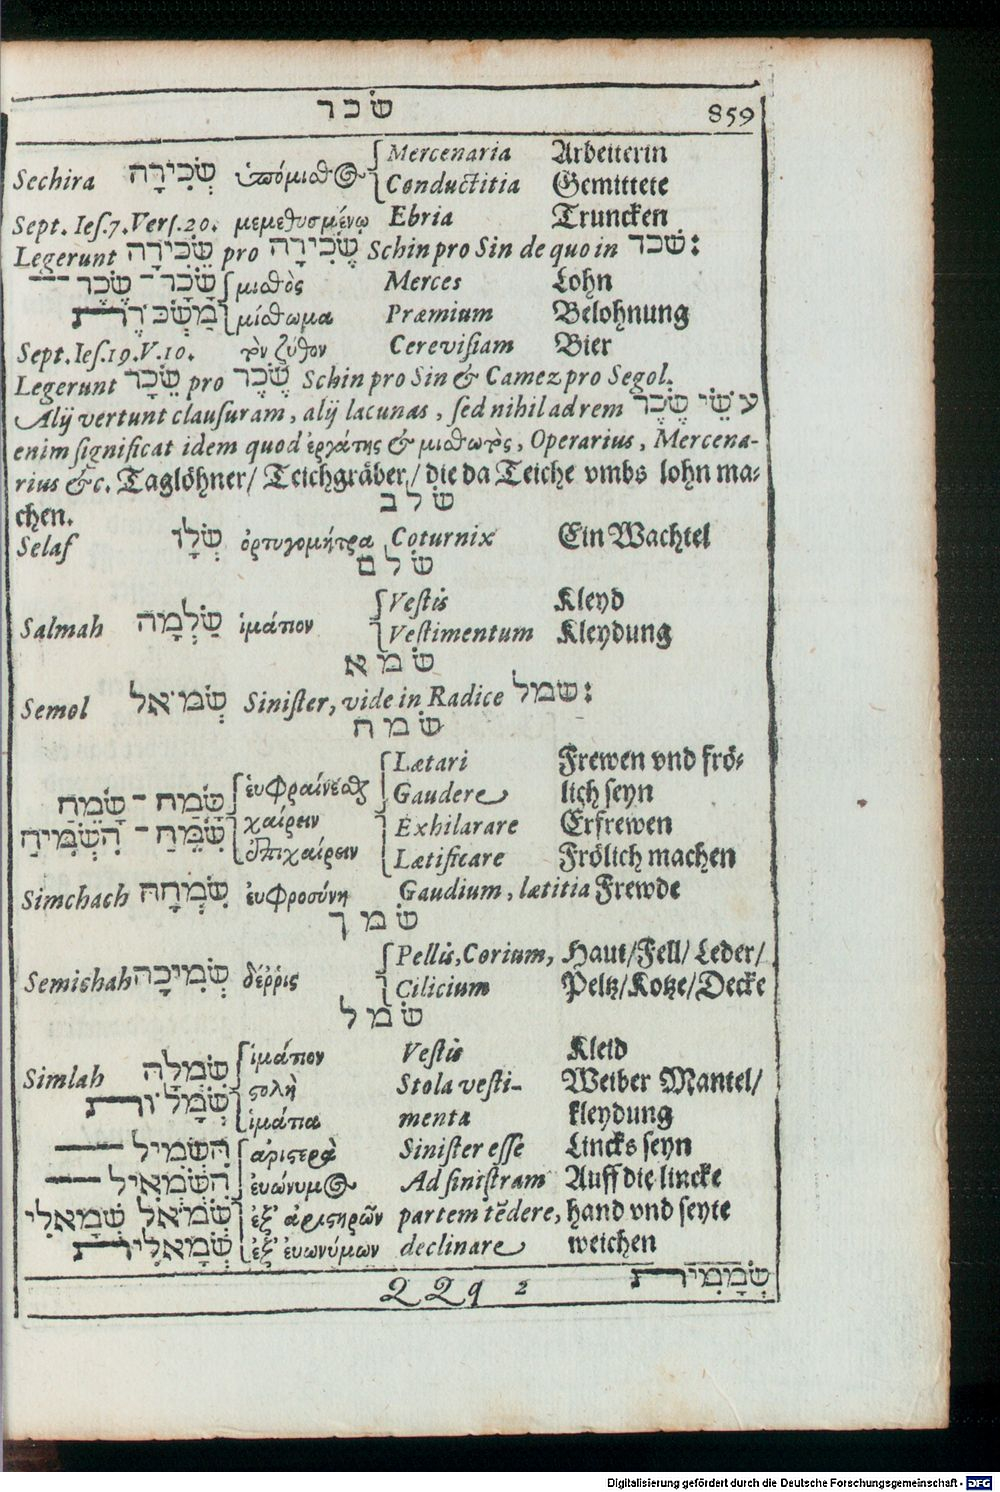 שׂכר 859
Sechira שְׂכִירָה ὑπόμισθος Mercenaria Arbeiterin
Conductitia Gemittete
Sept. Ies. 7. Vers. 20. μεμεθυσμένῳ Ebria Truncken
Legerunt שְׁכִירָה pro שְׂכִירָה Schin pro Sin de quo in שׁכר:
שָׂכָר - שֶׂכֶר μισθὸς Merces Lohn
מַשְׂכֹּרֶת μίσθωμα Præmium Belohnung
Sept. Ies. 19. V. 10. τὸν ζύθον Cerevisiam Bier
Legerunt שֵׁכָר pro שֶׂכֶר Schin pro Sin & Camez pro Segol.
Alij vertunt clausuram, alij lacunas, sed nihil ad rem עֹשֵׂי שֶׂכֶר
enim significat idem quod ἐργάτης & μισθωτὸς, Operarius, Mercena-
rius &c. Taglöhner/ Teichgräber/ die da Teiche vmbs lohn ma-
chen.
שׂלב
Selaf שְׂלָו ὀρτυγομήτρα Coturnix Ein Wachtel
שׂלם
Salmah שַׂלְמָה ἱμάτιον Vestis Kleyd
Vestimentum Kleydung
שׂמא
Semol שְׂמֹאל Sinister, vide in Radice שמל:
שׂמח
Lætari Frewen vnd frö-
שָׂמַח - שָׂמֵחַ ἐυφραίνεσθαι Gaudere lich seyn
שִׂמֵּחַ - הִשְׂמִיחַ χαίρειν Exhilarare Erfrewen
ἐπιχαίρειν Lætificare Frölich machen
Simchach שִׂמְחָה ἐυφροσύνη Gaudium, lætitia Frewde
שׂמך
Semichah שְׂמִיכָה δέῤῥις Pellis, Corium, Haut/ Fell/ Leder/
Cilicium Peltz/ Kotze/ Decke
שׂמל
Simlah שִׂמְלָה ἱμάτιον Vestis Kleid
שְׂמָלֹות ϛολὴ Stola vesti- Weiber Mantel/
ἱμάτια menta kleydung
הִשְׂמִיל ἀριϛερὰ Sinister esse Lincks seyn
הִשְׂמְאִיל ἐυώνυμος Ad sinistram Auff die lincke
שְׂמֹאל שְׂמָאלִי ἐξ' ἀριϛηρῶν partem tēdere, hand vnd seyte
שְׂמָאלִית ἐξ' ἐυωνύμων declinare weichen
QQq 2 שְׂמָמִית
Digitalisierung gefördert durch die Deutsche Forschungsgemeinschaft - DFG